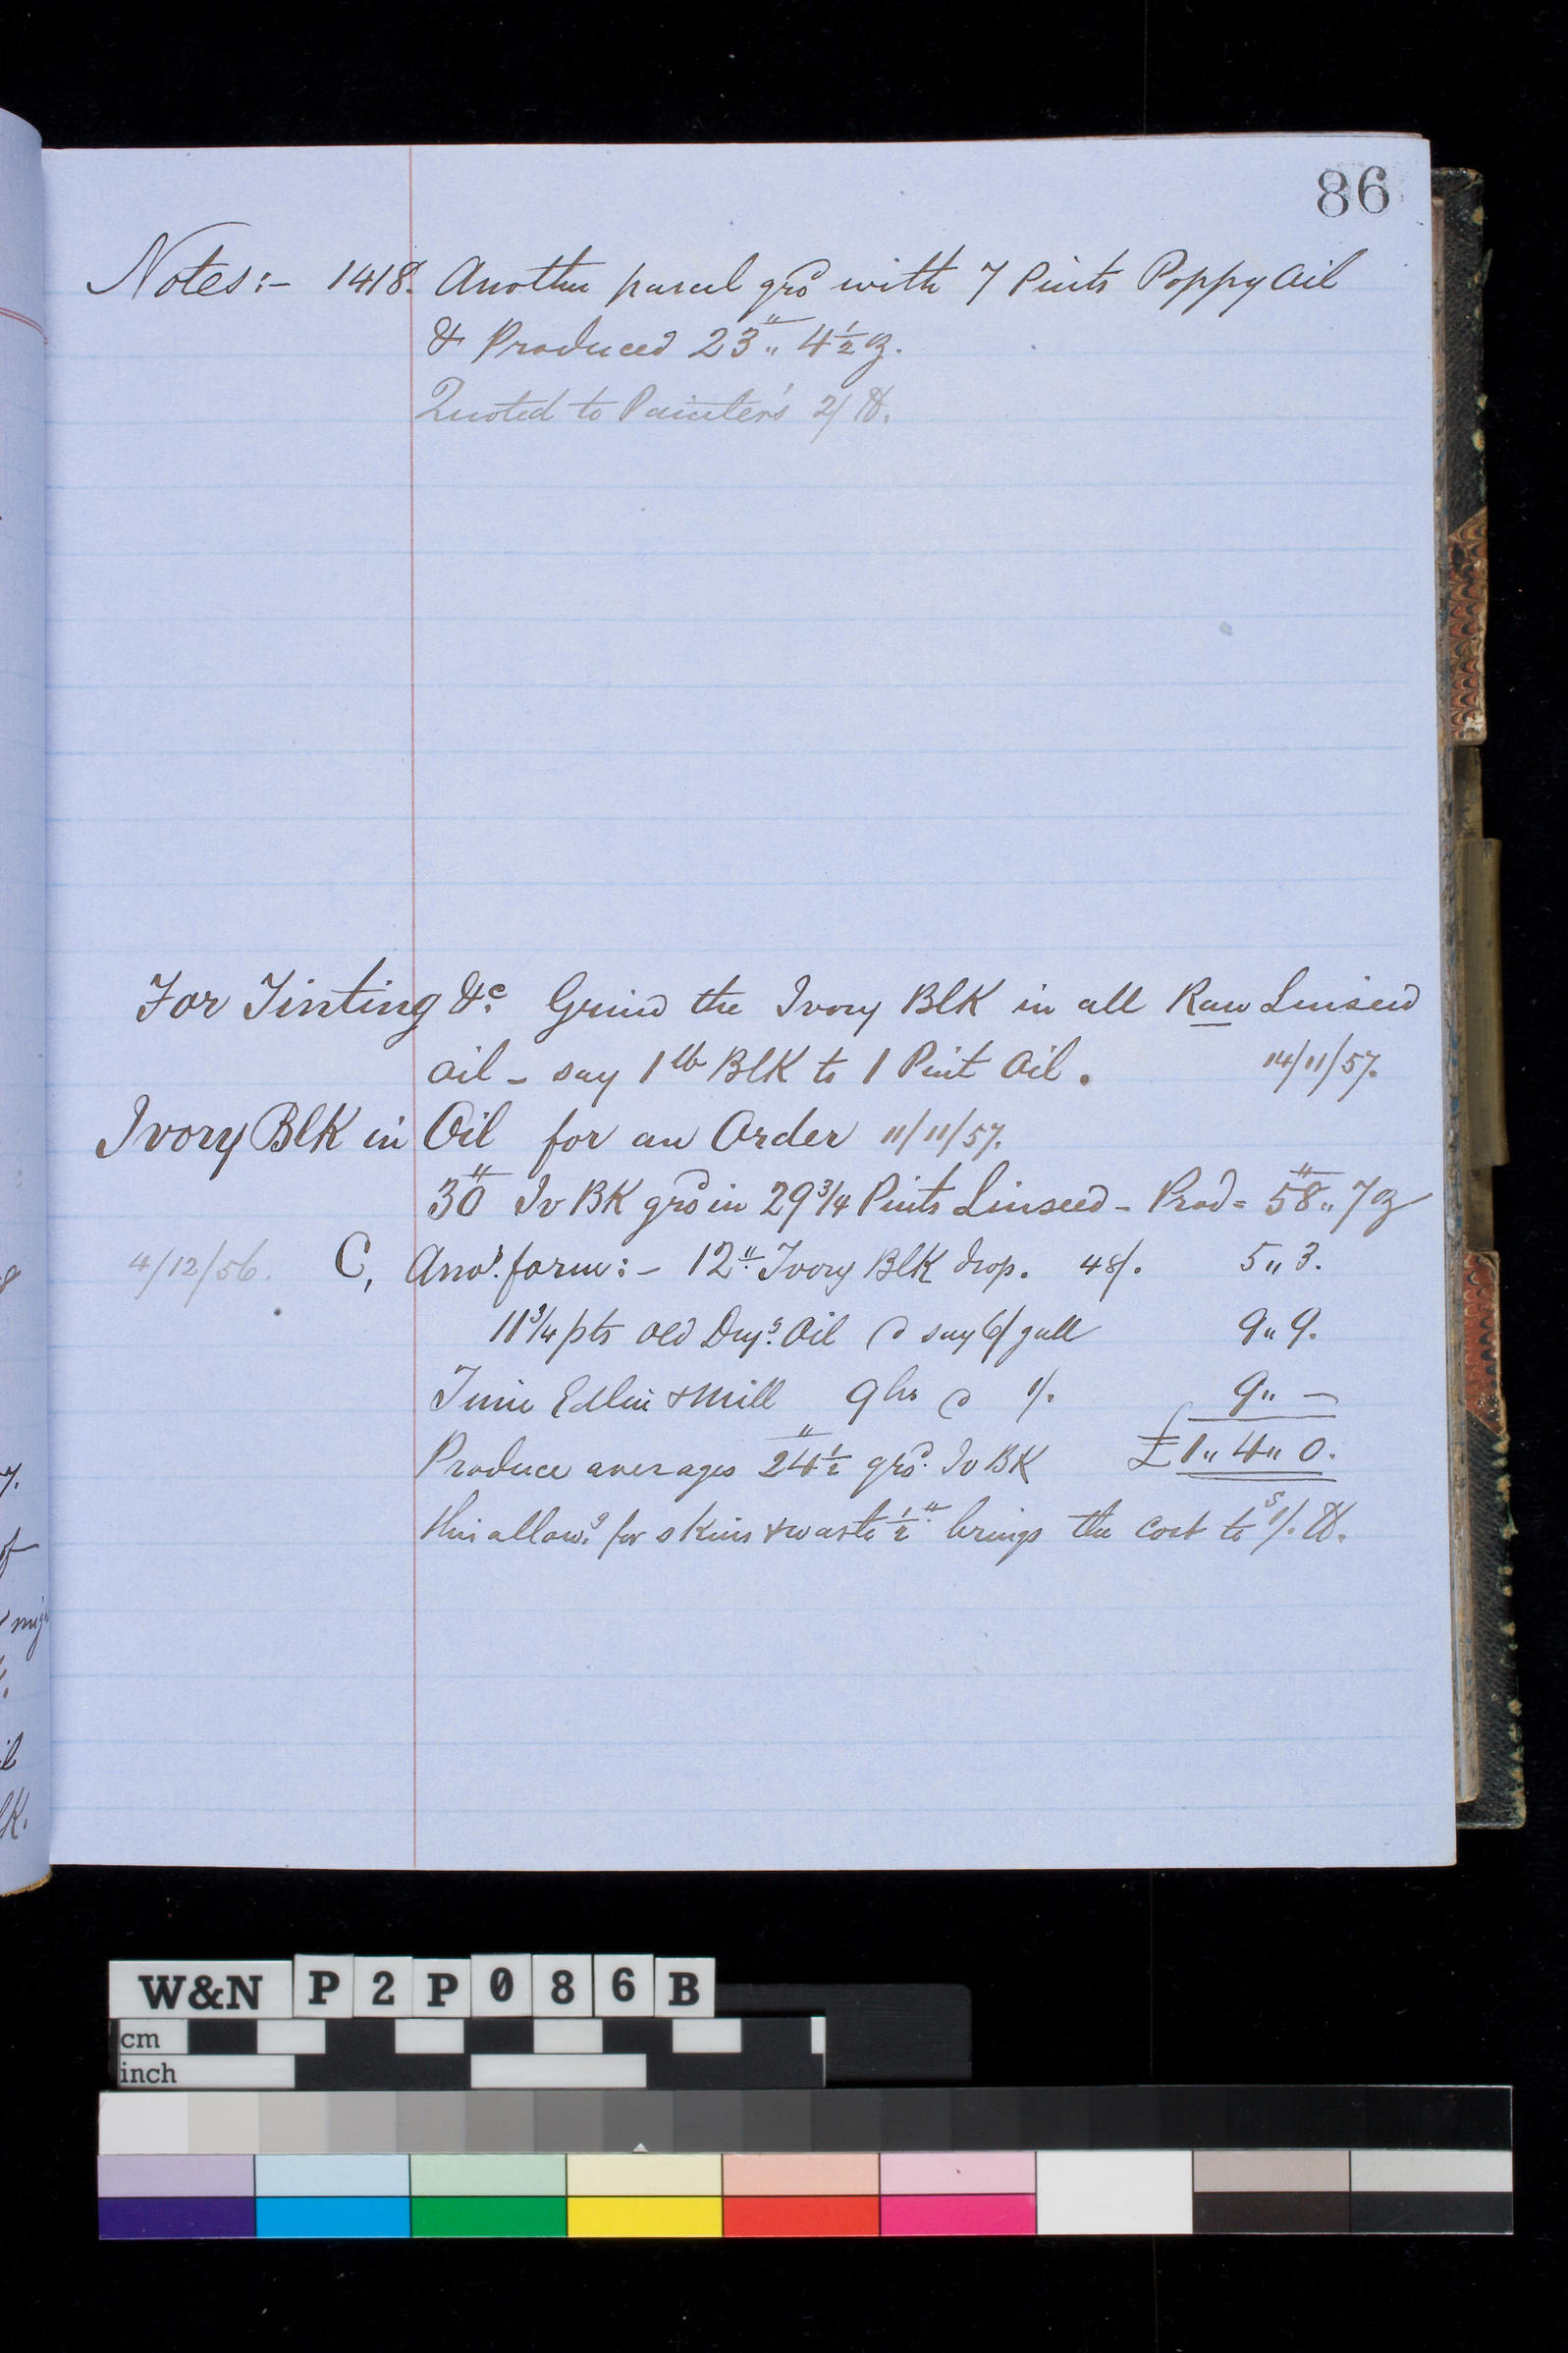 86
Notes:- 1418. Another parcel gr^d with 7 Pints Poppy Oil
& Produced 23 " 4½ oz.
Quoted to Painter's 2/ ℔.
For Tinting &c. Grind the Ivory Blk in all Raw Linseed
oil - say 1 lb Blk to 1 Pint Oil. 14/11/57.
Ivory Blk in Oil for an Order 11/11/57.
30" Iv BK gr^d in 29¾ Pints Linseed - Prod = 58 " 7 oz
4/12/56. C, Ano^r. form:- 12" Ivory Blk drop. 48/. 5 " 3.
11¾ pts old Dry^g. Oil @ say 6/ gall 9 " 9.
Time Edlin & Mill 9 hrs @ 1/. 9 " -
Produce averages 24½ gr^d. Iv BK £1 " 4 " 0.
this allow^g. for skins & waste ½" brings the cost to 1/. ℔.
7.
of
mig
il
lk.
W&N P2P086B
cm
inch